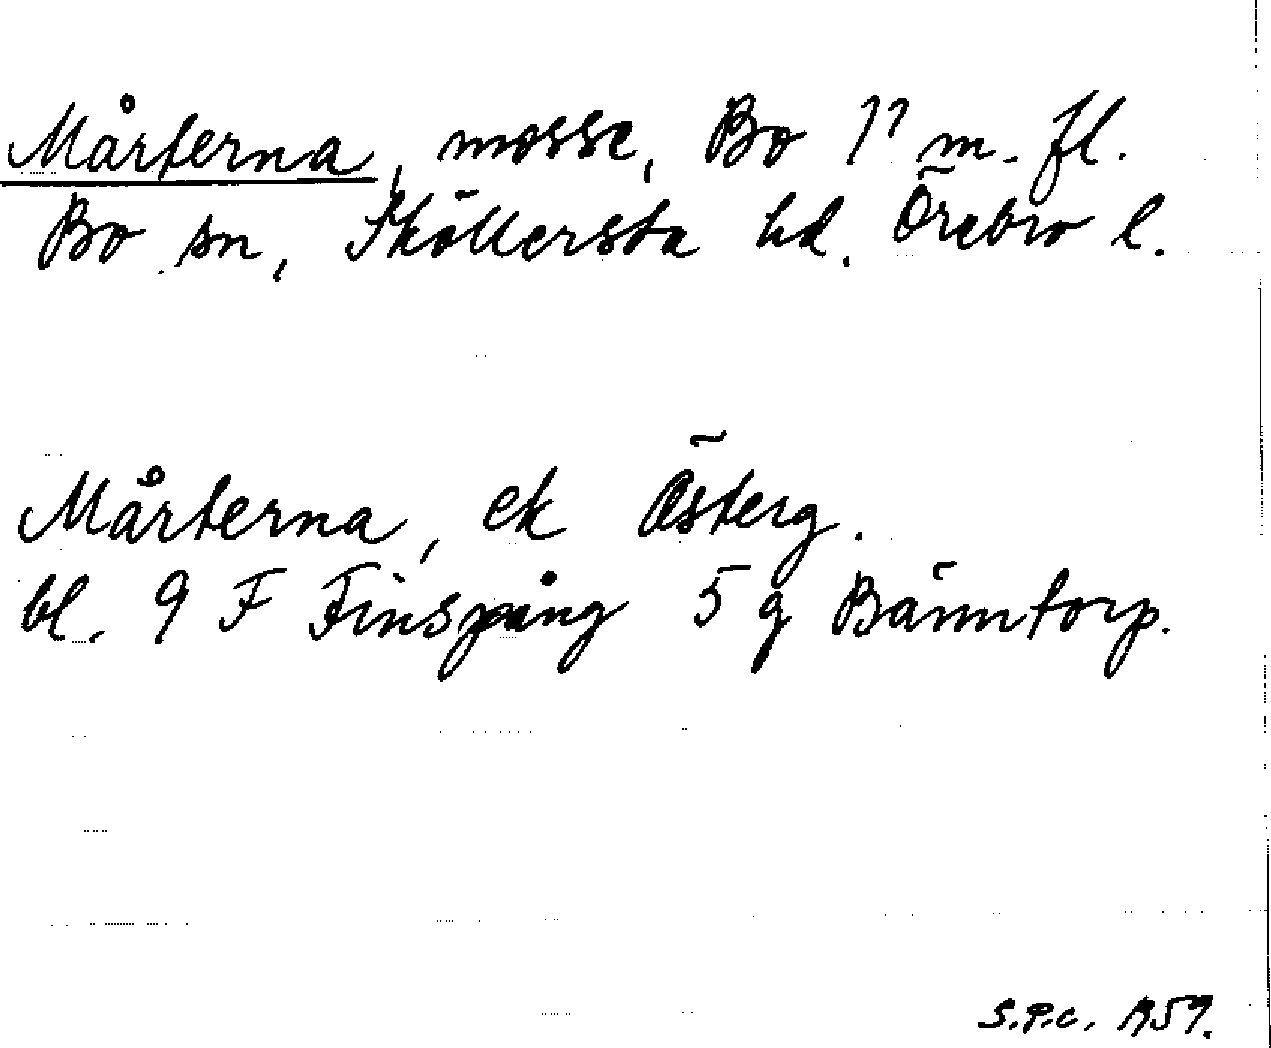 Mårterna, mosse, Bo 1⁷ m. fl.
Bo sn, Sköllersta hd. Örebro l.
Mårterna, ek Österg.
bl. 9 F Finspång 5 g Bänntorp.
S.P.c. 1959.